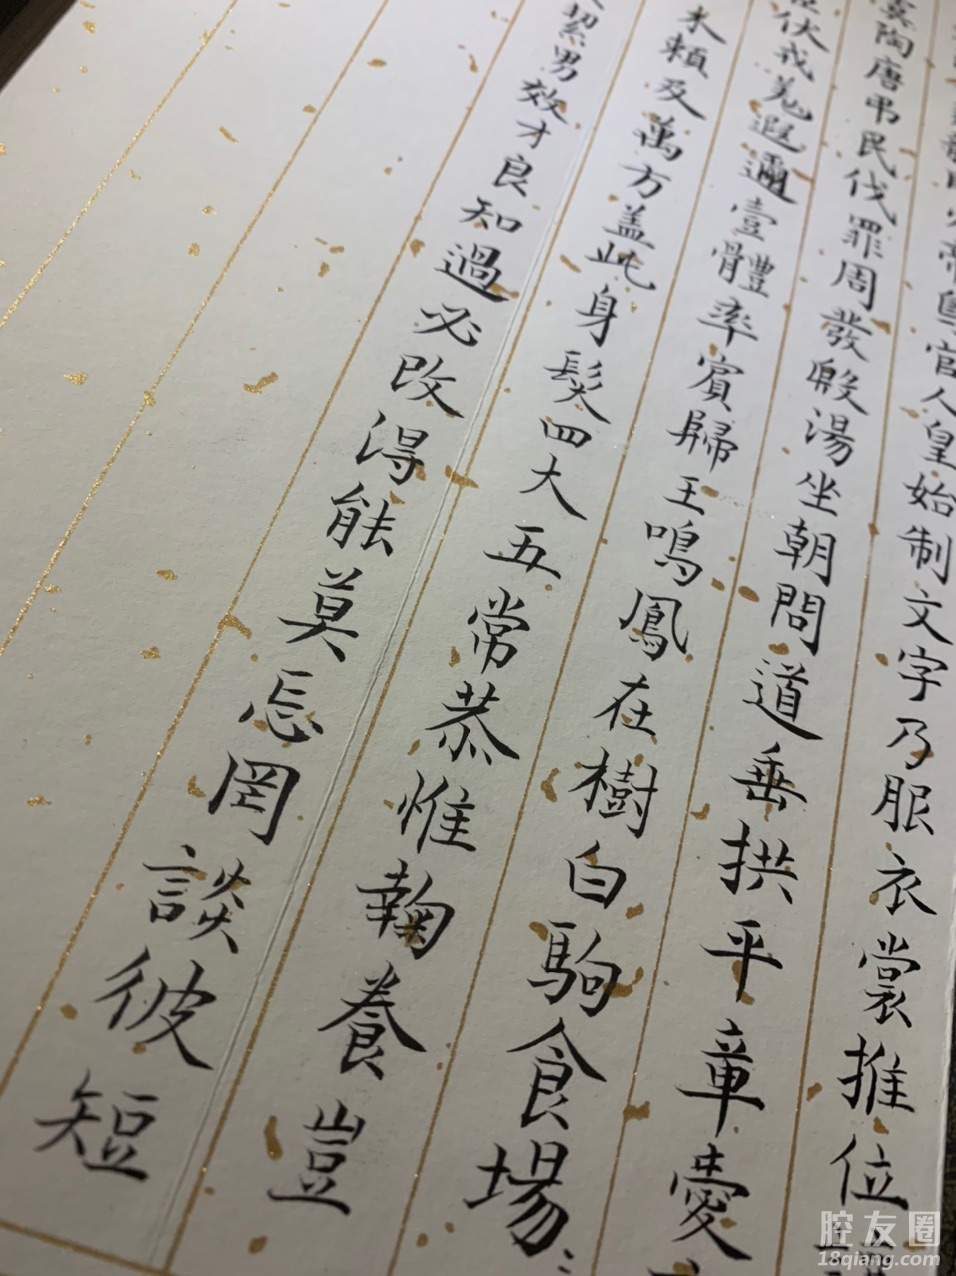 師火帝鳥官人皇始制文字乃服衣裳推位
陶唐弔民伐罪周發殷湯坐朝問道垂拱平章愛
伏戎羌遐邇壹體率賓歸王鳴鳳在樹白駒食場
木賴及萬方盖此身髮四大五常恭惟鞠養豈
絜男效才良知過必改淂能莫忘罔談彼短
腔友圈
18qiang.com